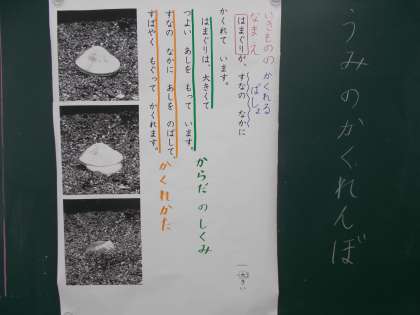 うみのかくれんぼ
いきものの
なまえ
かくれる
ばしょ
はまぐりが、すなの なかに
かくれて います。
はまぐりは、大きくて
つよい あしを もって います。
からだ の しくみ
すなの なかに あしを のばして、
すばやく もぐって かくれます。
かくれかた
大きい